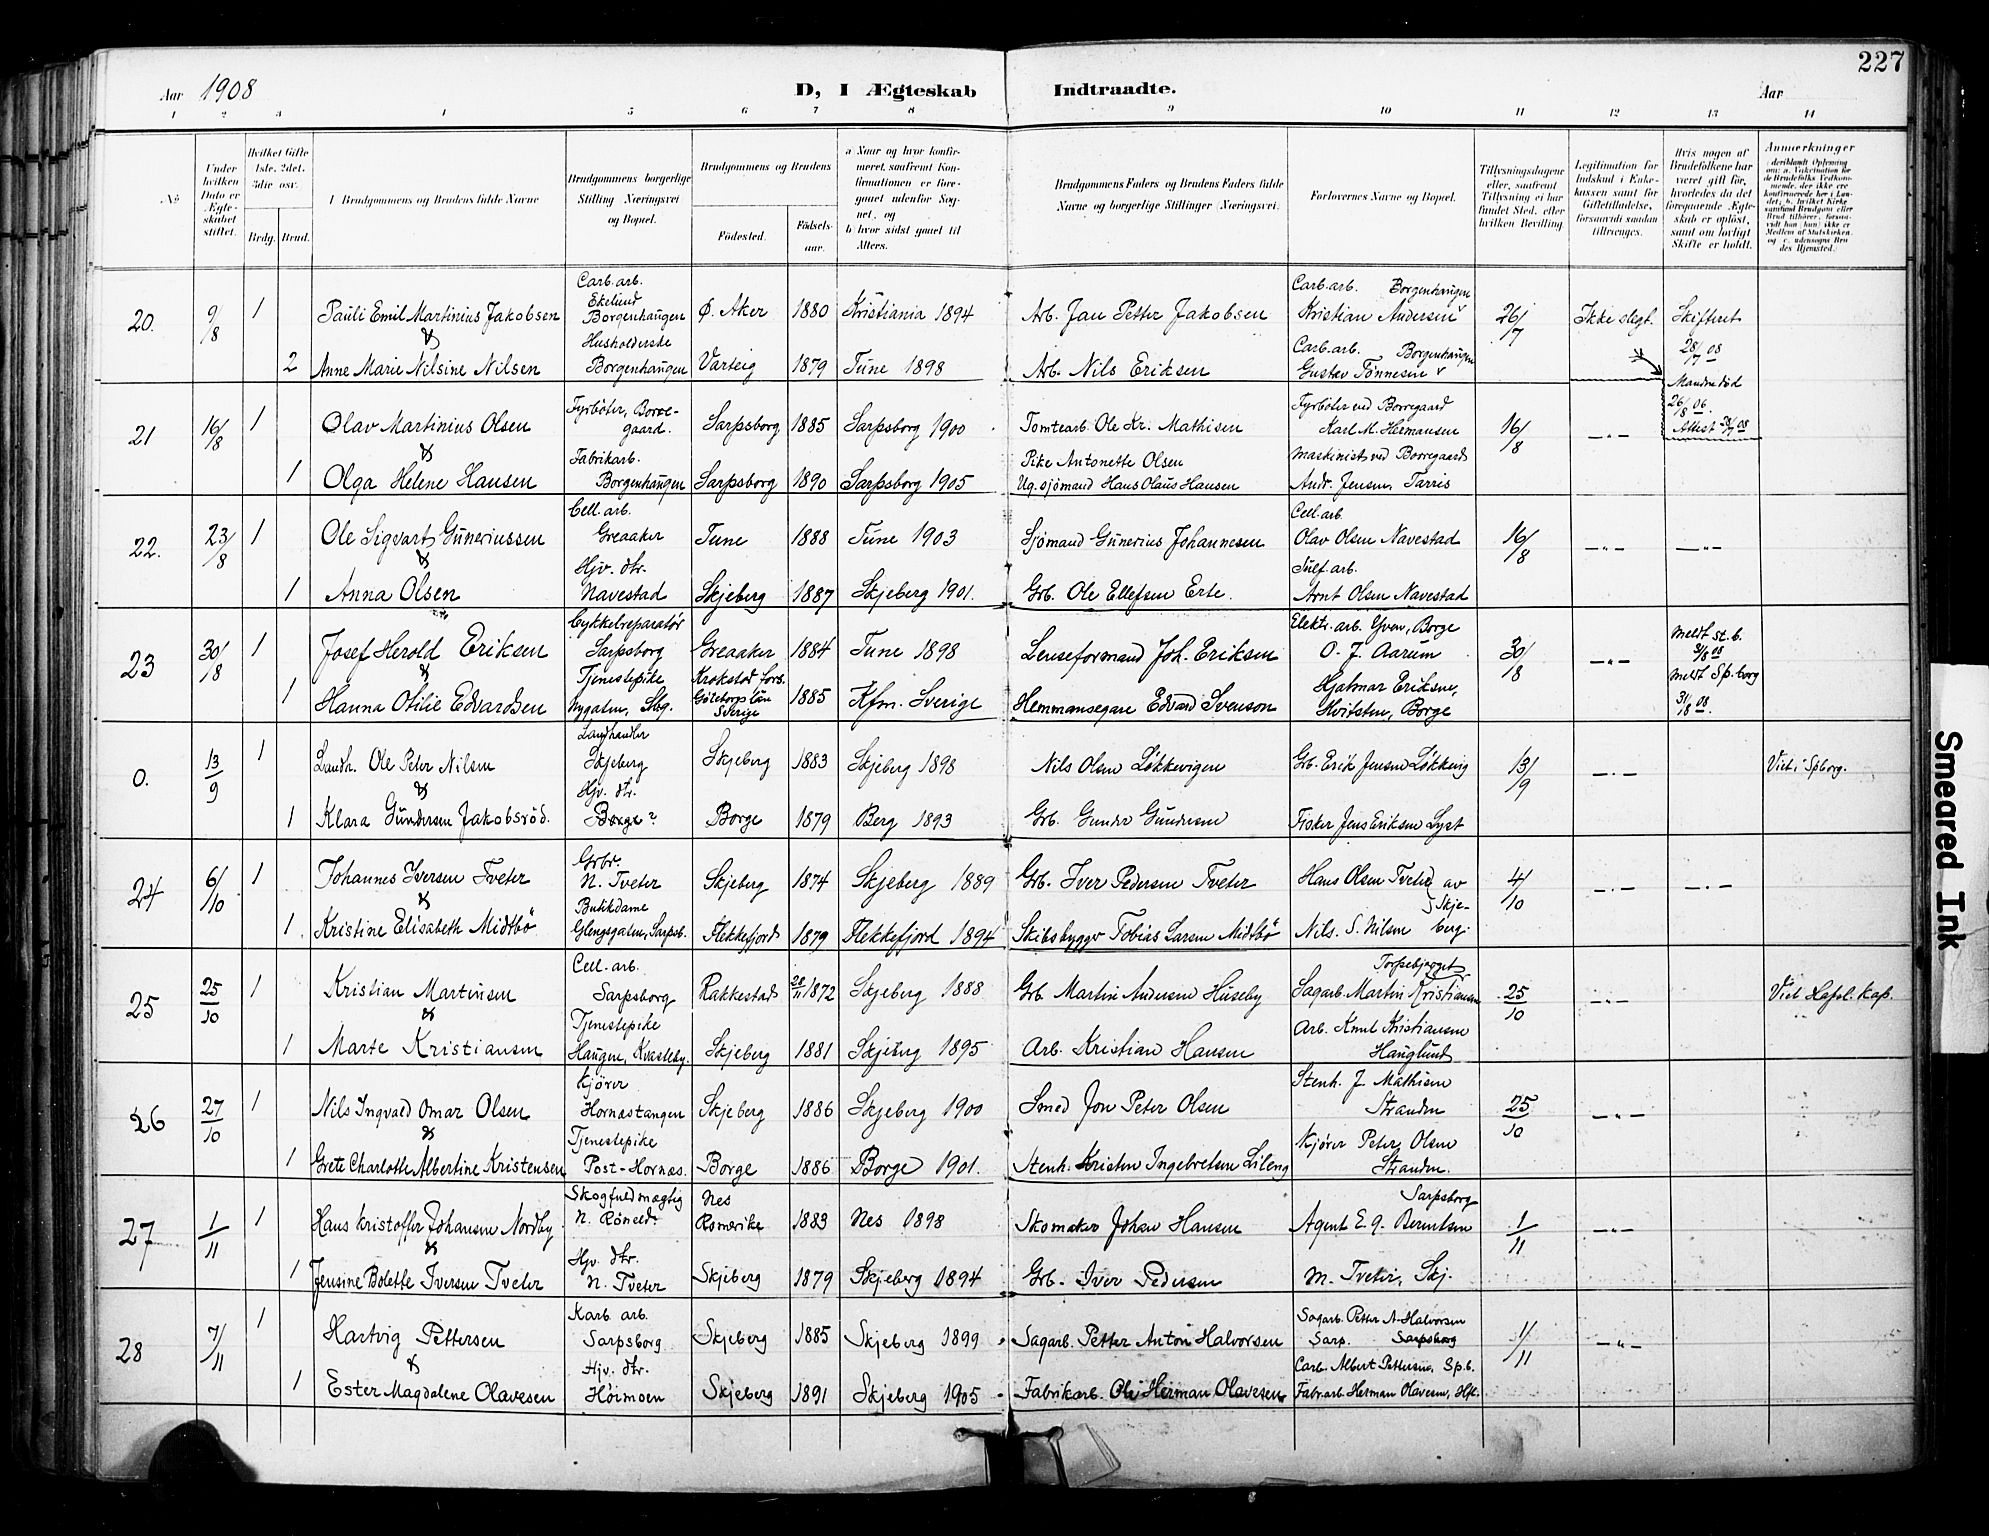 227
Aar 1908
D, I Ægteskab Indtraadte.
Aar
1 2 3 4 5 6 7 8 9 10 11 12 13 14
No
Under hvilken Dato er Ægteskabet stiftet.
Hvilket Gifte 1ste, 2det, 3die osv.
Brdg. Brud.
Brudgommens og Brudens fulde Navne
Brudgommens borgerlige Stilling Næringsvei og Bopæl.
Brudgommens og Brudens
Födested.
Födselsaar.
a Naar og hvor konfirmeret, saafremt Konfirmationen er foregaaet udenfor Sognet, og
b hvor sidst gaaet til Alters.
Brudgommens Faders og Brudens Faders fulde Navne og borgerlige Stillinger (Næringsvei).
Forlovernes Navne og Bopæl.
Tillysningsdagene eller, saafremt Tillysning ei har fundet Sted, efter hvilken Bevilling.
Legitimation for Indskud i Enkekassen samt for Giftetilladelse, forsaavidt saadan tiltrænges.
Hvis nogen af Brudefolkene har været gift før, hvorledes da det foregaaende Ægteskab er oplöst, samt om lovligt Skifte er holdt.
Anmerkninger
20. 9/8 1 Pauli Emil Martinius Jakobsen Carb. arb. Ekelund Borgenhaugen Ø. Aker 1880 Kristiania 1894 Arb. Jan Petter Jakobsen Carb. arb. Borgenhaugen Kristian Andersen 26/7 Ikke slegt. Skifteret 28/7 08
&
2 Anne Marie Nilsine Nilsen Husholderske Borgenhaugen Varteig 1879 Tune 1898 Arb. Nils Eriksen Carb. arb. Borgenhaugen Gustav Tønnesen Manden død 26/8 06. Attest 28/7 08
21 16/8 1 Olav Martinius Olsen Fyrbøter, Borregaard. Sarpsborg 1885 Sarpsborg 1900 Tomtearb. Ole Kr. Mathisen Fyrbøter ved Borregaard Karl M. Hermansen 16/8 —„—
&
1 Olga Helene Hansen Fabrikarb. Borgenhaugen Sarpsborg 1890 Sarpsborg 1905 Pike Antonette Olsen Ug. sjømand Hans Olaus Hansen Maskinist ved Borregaard Andr. Jensen, Tarris
22. 23/8 1 Ole Sigvart Guneriussen Cell. arb. Greaaker Tune 1888 Tune 1903 Sjömand Gunerius Johannesen Cell. arb. Olav Olsen Navestad 16/8 —„— —„—
&
1 Anna Olsen Hjv. dtr. Navestad Skjeberg 1887 Skjeberg 1901. Grb. Ole Ellefsen Erte. Sulf. arb. Arnt Olsen Navestad
23 30/8 1 Josef Herold Eriksen Cykkelreparatør Sarpsborg Greaaker 1884 Tune 1898 Lenseformand Joh. Eriksen Elektr. arb. Yven, Borge O. J. Aarum 30/8 —„— Meldt st. b. 31/8 08
&
1 Hanna Otilie Edvardsen Tjenestepike Nygaten, Sbg. Krokstad fors. Göteborgs län Sverige 1885 Kfm. Sverige Hemmansegare Edvard Svenson Hjalmar Eriksen, Hvitsten, Borge Meldt Sp.borg 31/8 08.
0. 13/9 1 Landh. Ole Peter Nilsen Landhandler Skjeberg Skjeberg 1883 Skjeberg 1898 Nils Olsen Løkkevigen Grb. Erik Jensen Løkkevig 13/9 —„— Viet i Spborg.
&
1 Klara Gundersen Jakobsröd. Hjv. dtr. Borge? Borge 1879 Berg 1893 Grb. Gunder Gundersen Fisker Jens Eriksen Lyst
24 6/10 1 Johannes Iversen Tveter Grbr. N. Tveter Skjeberg 1874 Skjeberg 1889 Grb. Iver Pedersen Tveter Hans Olsen Tveter av Skjeberg 4/10 —„— —„—
&
1. Kristine Elisabeth Midtbö Butikdame Glengsgaten, Sarpsb. Flekkefjord 1879 Flekkefjord 1894 Skibsbygger Tobias Larsen Midtbö Nils. S. Nilsen
25 25/10 1 Kristian Martinsen Cell. arb. Sarpsborg Rakkestad 28/11 1872 Skjeberg 1888 Grb. Martin Andersen Huseby Sagarb. Martin Kristiansen 25/10 —„— Viet Hafsl. Kap.
&
1 Marte Kristiansen Tjenestepike Haugen, Kvasteby. Skjeberg 1881 Skjeberg 1895 Arb. Kristian Hansen Arb. Knut Kristiansen Hauglund
26 27/10 1 Nils Ingvald Omar Olsen Kjører Hornæstangen Skjeberg 1886 Skjeberg 1900 Smed Jon Peter Olsen Stenh. J. Mathisen Stranden 25/10 —„—
&
1 Grete Charlotte Albertine Kristensen Tjenestepike Post-Hornæs. Borge 1886 Borge 1901. Stenh. Kristen Ingebretsen Lileng Kjører Peter Olsen Stranden.
27 1/11 1 Hans Kristoffer Johansen Nordby. Skogfuldmægtig Nes Romerike 1883 Nes 1898 Skomaker Johan Hansen Sarpsborg Agent E. G. Berntsen 1/11 —„—
&
1 Jensine Bolette Iversen Tveter Hjv. dtr. N. Tveter Skjeberg 1879 Skjeberg 1894 Grb. Iver Pedersen M. Tveter, Skj.
28 7/11 1 Hartvig Pettersen Karb. arb. Sarpsborg Skjeberg 1885 Skjeberg 1899 Sagarb. Petter Anton Halvorsen Sagarb. Petter A. Halvorsen Sarp. Sarpsborg 1/11 —„—
&
1 Ester Magdalene Olavesen Hjv. dtr. Höimoen Skjeberg 1891 Skjeberg 1905 Fabrikarb. Ole Herman Olavesen Carb. Albert Pettersen, Sp.b. Fabr.arb. Herman Olavesen, Hfl.
Smeared Ink